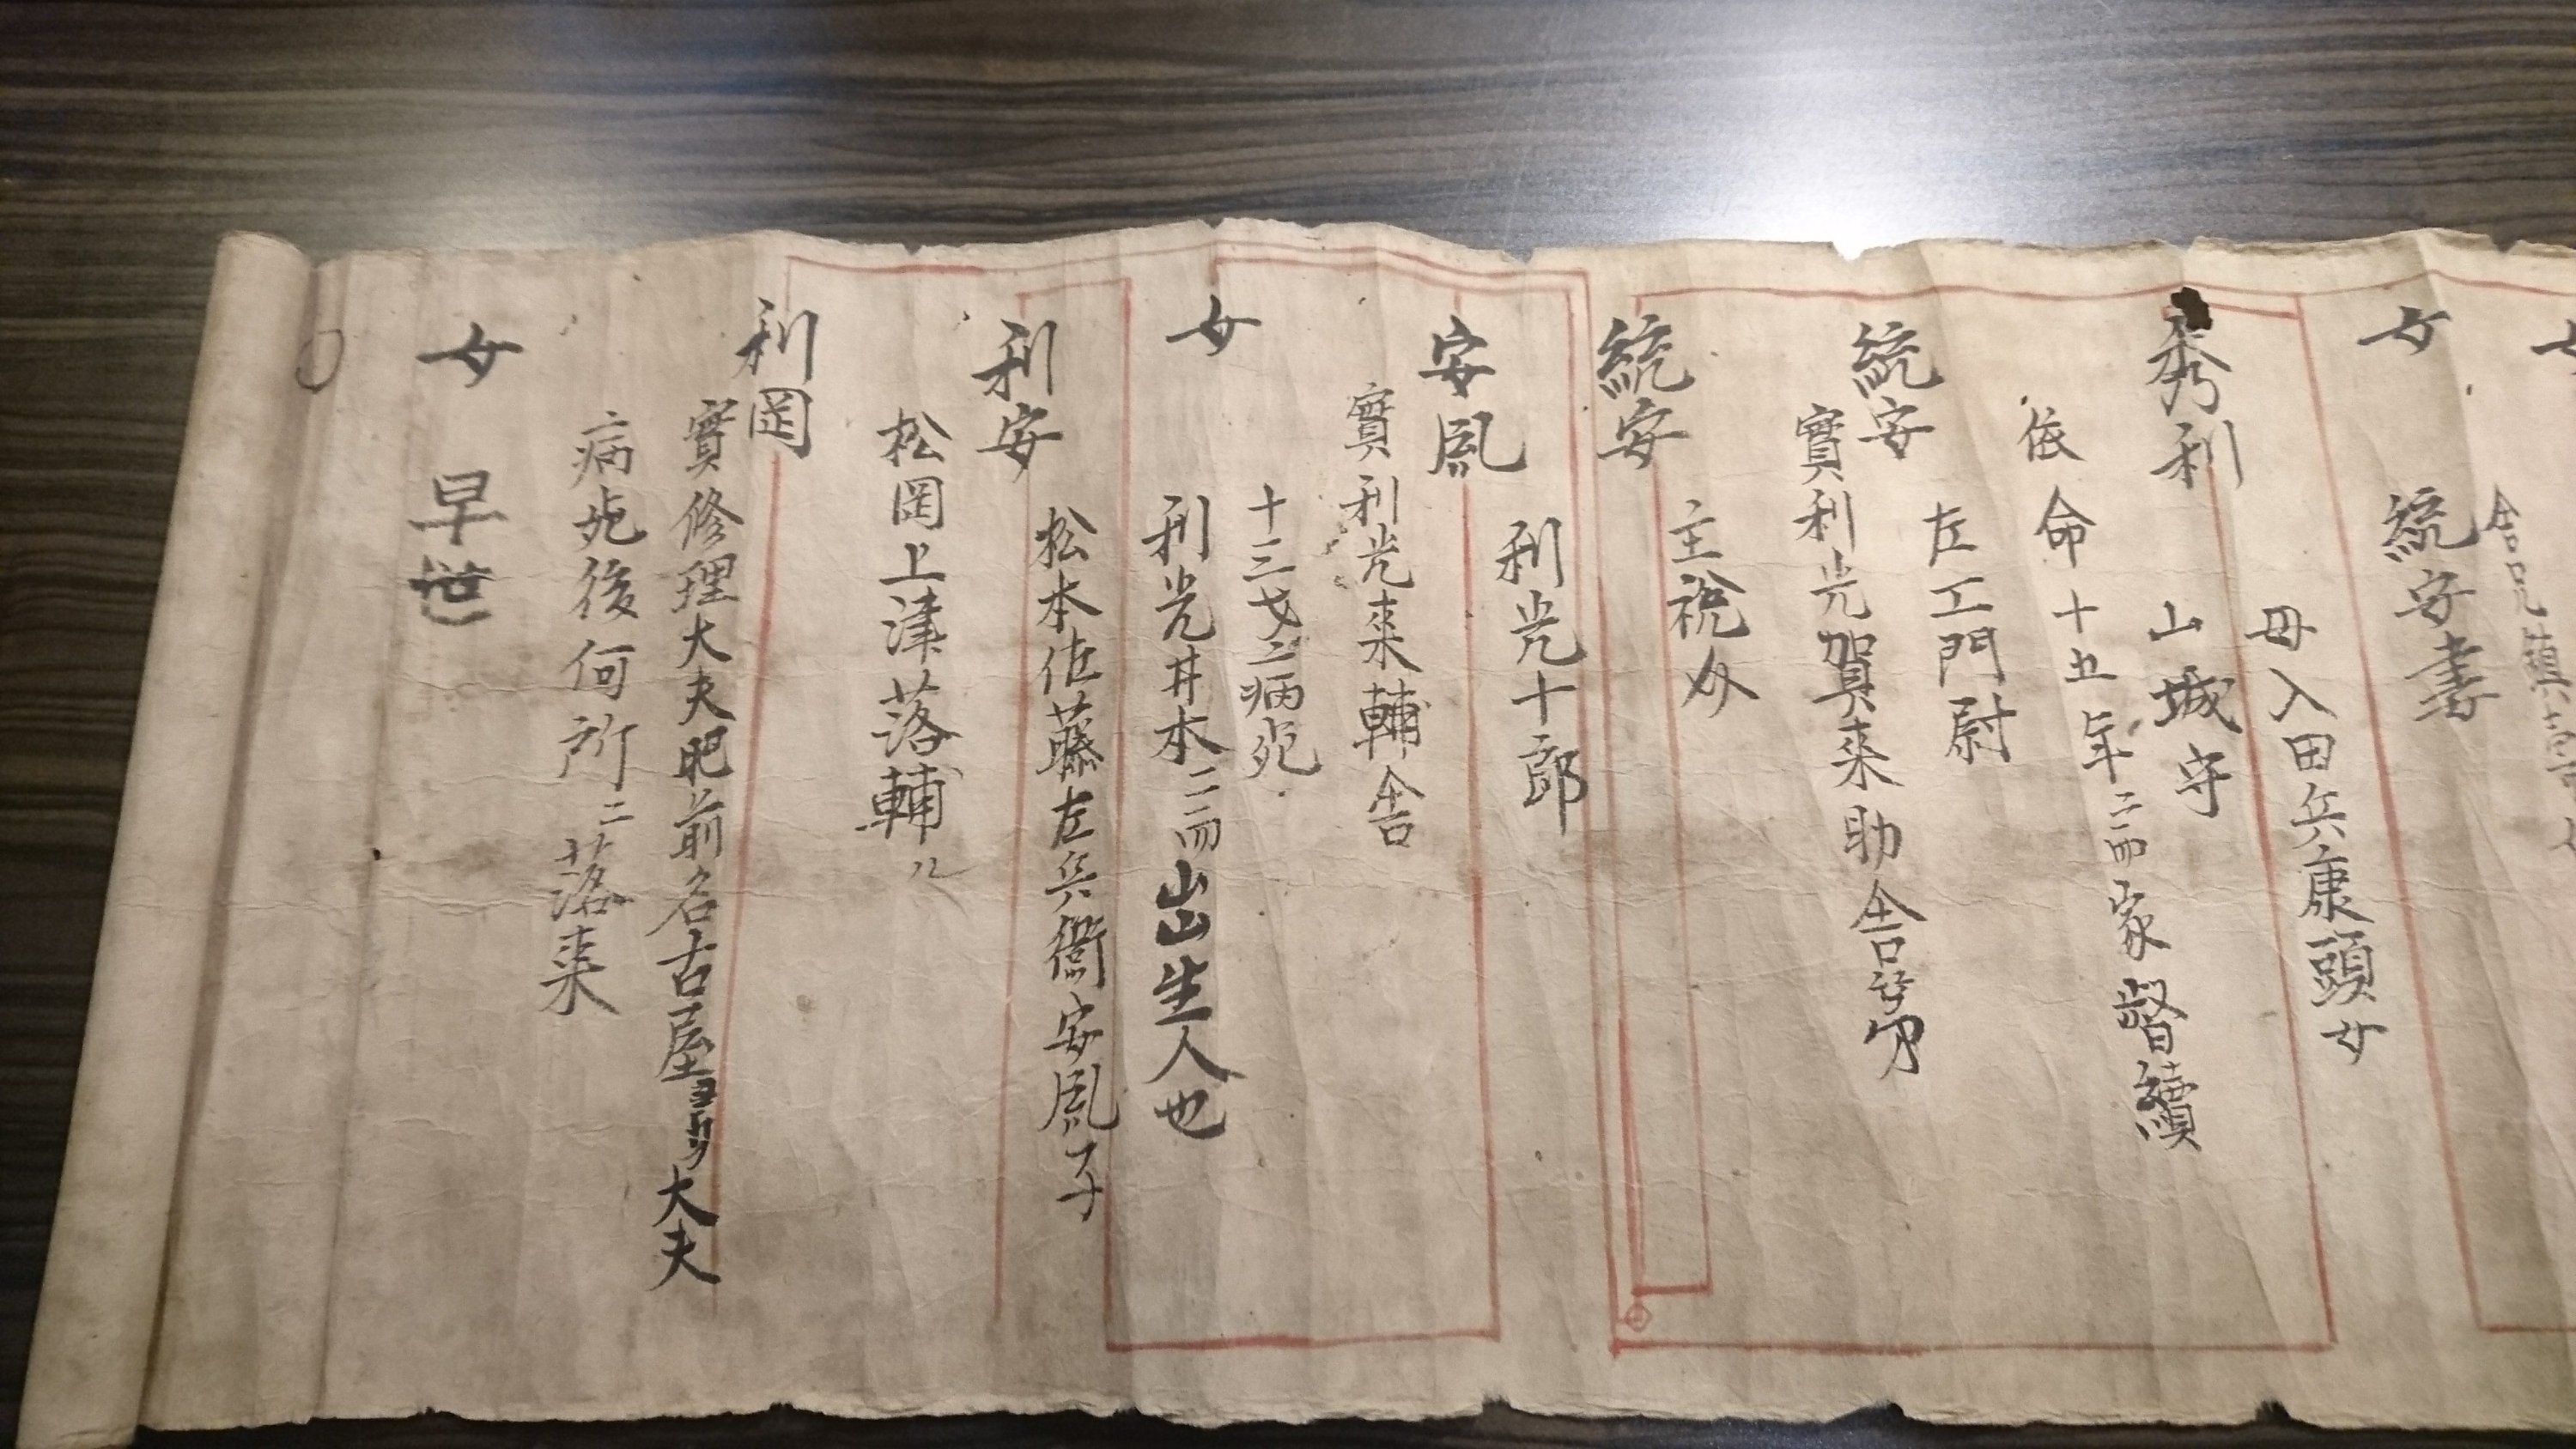 女
舎兄鎮
女 統安妻
母入田兵庫頭女
秀利 山城守
依命十五年ニ而家督續
統安 左工門尉
實利光賀来助舎弟
統安 主税介
利光十郎
安凮
實利光来輔舎
十三才ニ病死
女 利光井本ニ而出生人也
松本佐藤左兵衛安凮子
利安
松岡上津落輔
利岡
實修理大夫肥前名古屋ヨリ大夫
病死後何所ニ落来
女 早世